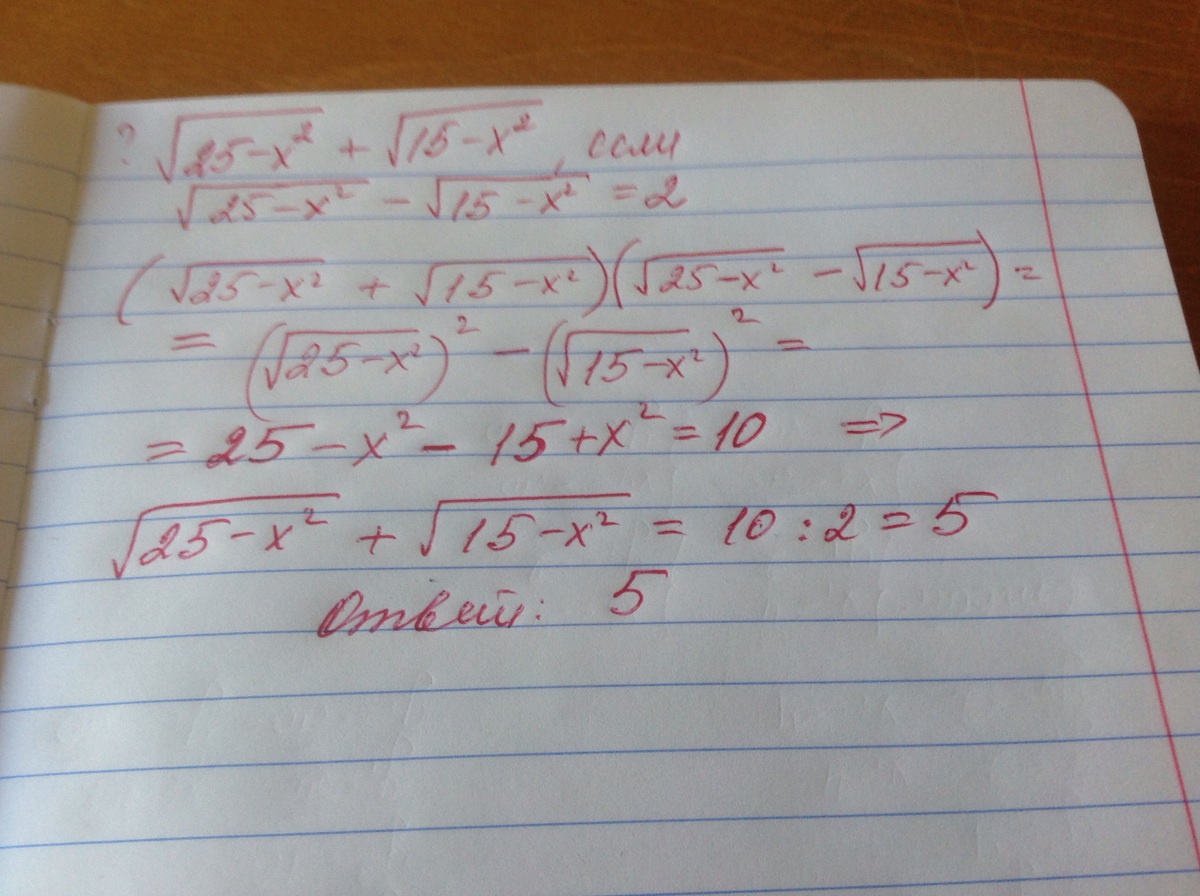 ? √25-x² + √15-x², если
√25-x² - √15-x² = 2
(√25-x² + √15-x²)(√25-x² - √15-x²) =
= (√25-x²)² - (√15-x²)² =
= 25-x² - 15+x² = 10 =>
√25-x² + √15-x² = 10 : 2 = 5
Ответ: 5